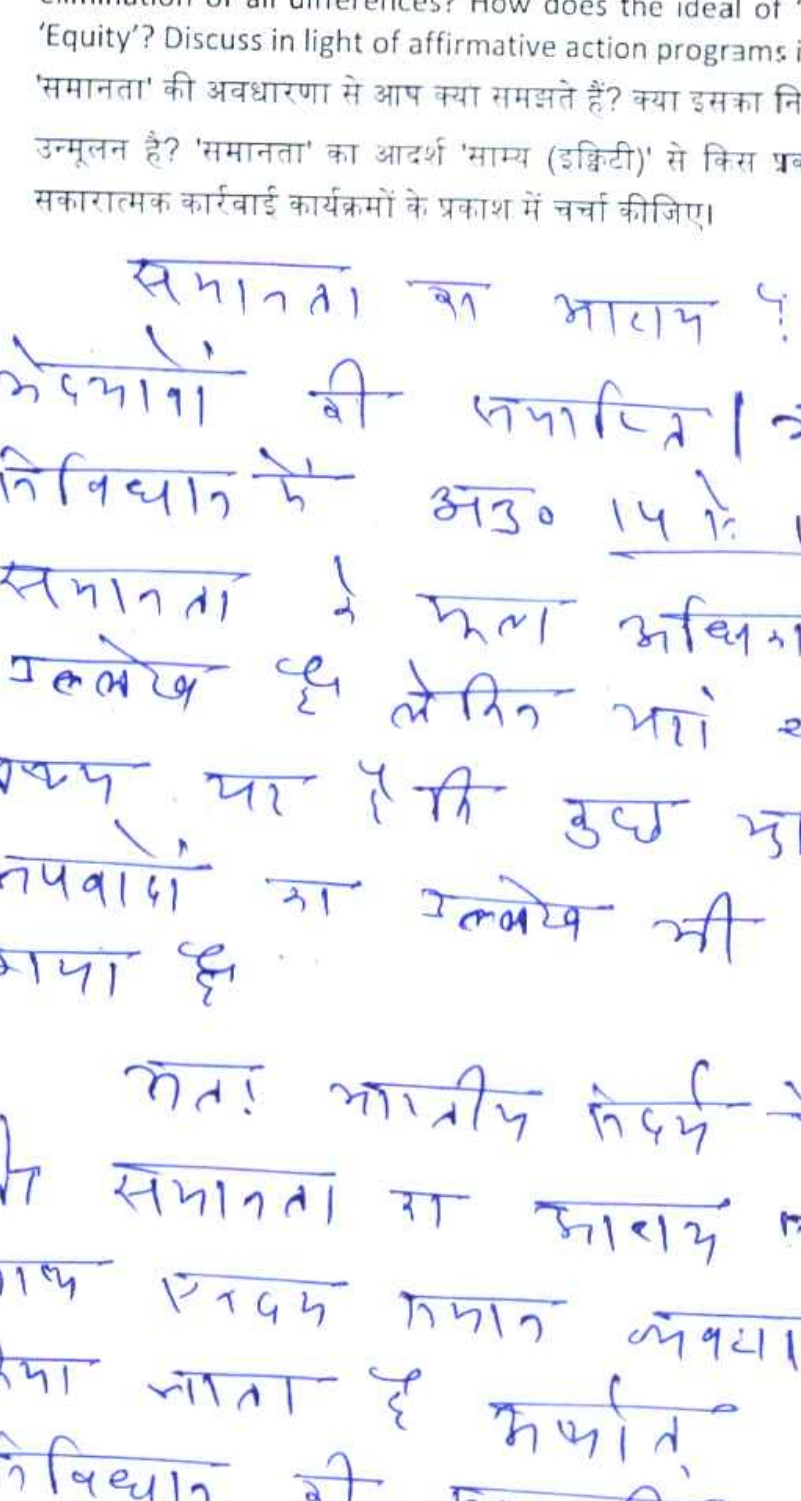 elimination of all differences? How does the ideal of '
'Equity'? Discuss in light of affirmative action programs i
'समानता' की अवधारणा से आप क्या समझते हैं? क्या इसका नि
उन्मूलन है? 'समानता' का आदर्श 'साम्य (इक्विटी)' से किस प्रक
सकारात्मक कार्रवाई कार्यक्रमों के प्रकाश में चर्चा कीजिए।
समानता का आशय है
भेदभावों की समाप्ति।
संविधान के अनु० 14 से
समानता के मूल
उल्लेख है लेकिन यहां
यह है कि कुछ
अपवादों का उल्लेख भी
गया है
अतः भारतीय संदर्भ
समानता का आशय
साथ एकदम समान
जाता है अर्थात्
संविधान की